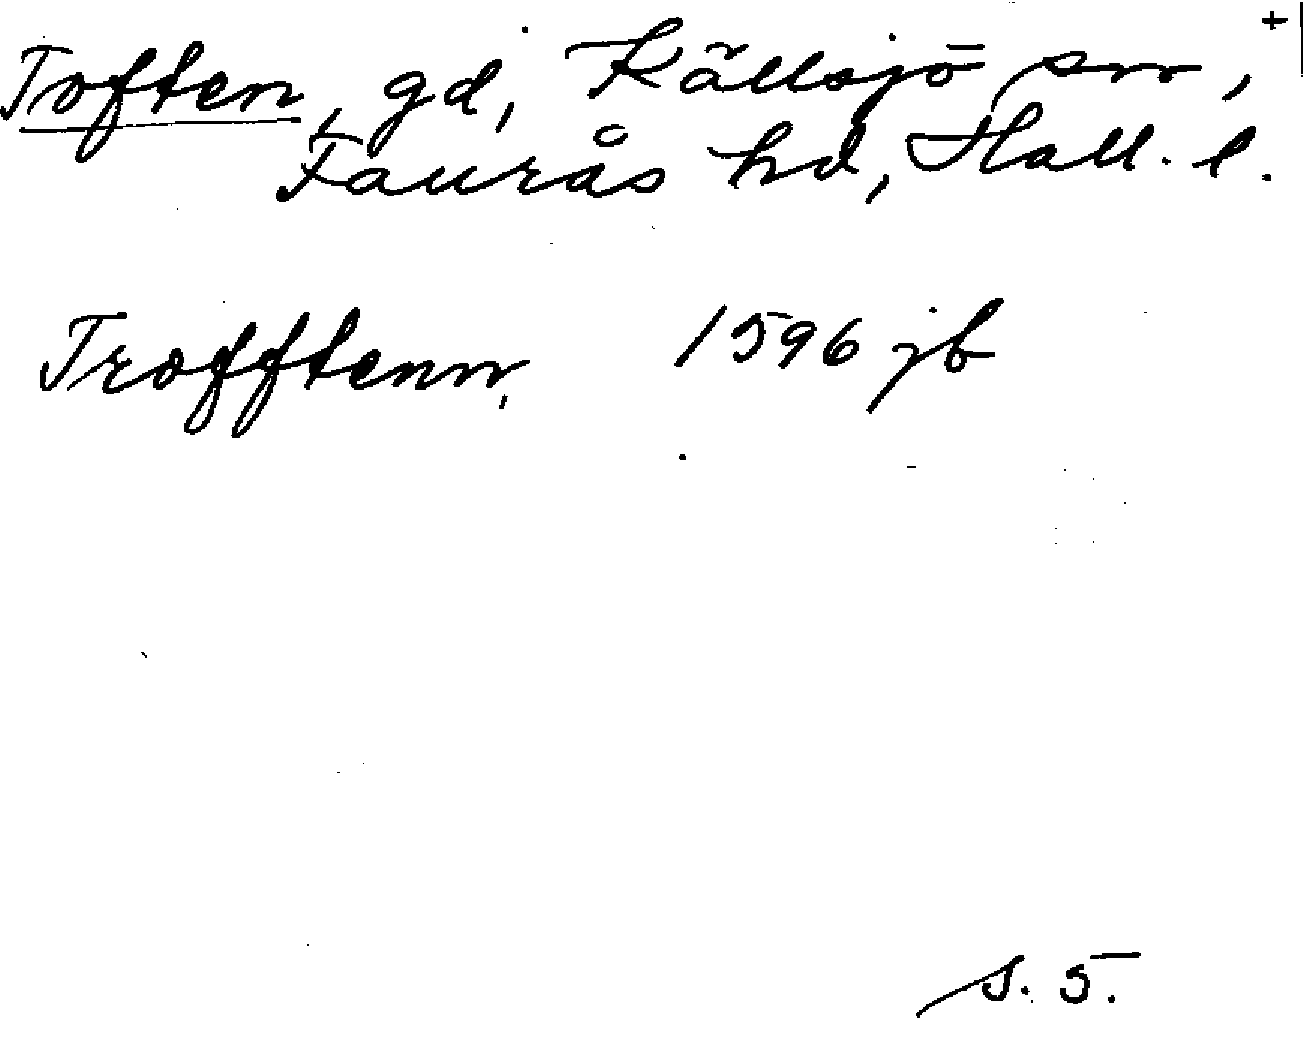 Toften, gd, Källsjö sn, +
Faurås hd, Hall. l.
Trofftenn, 1596 jb
s. 5.